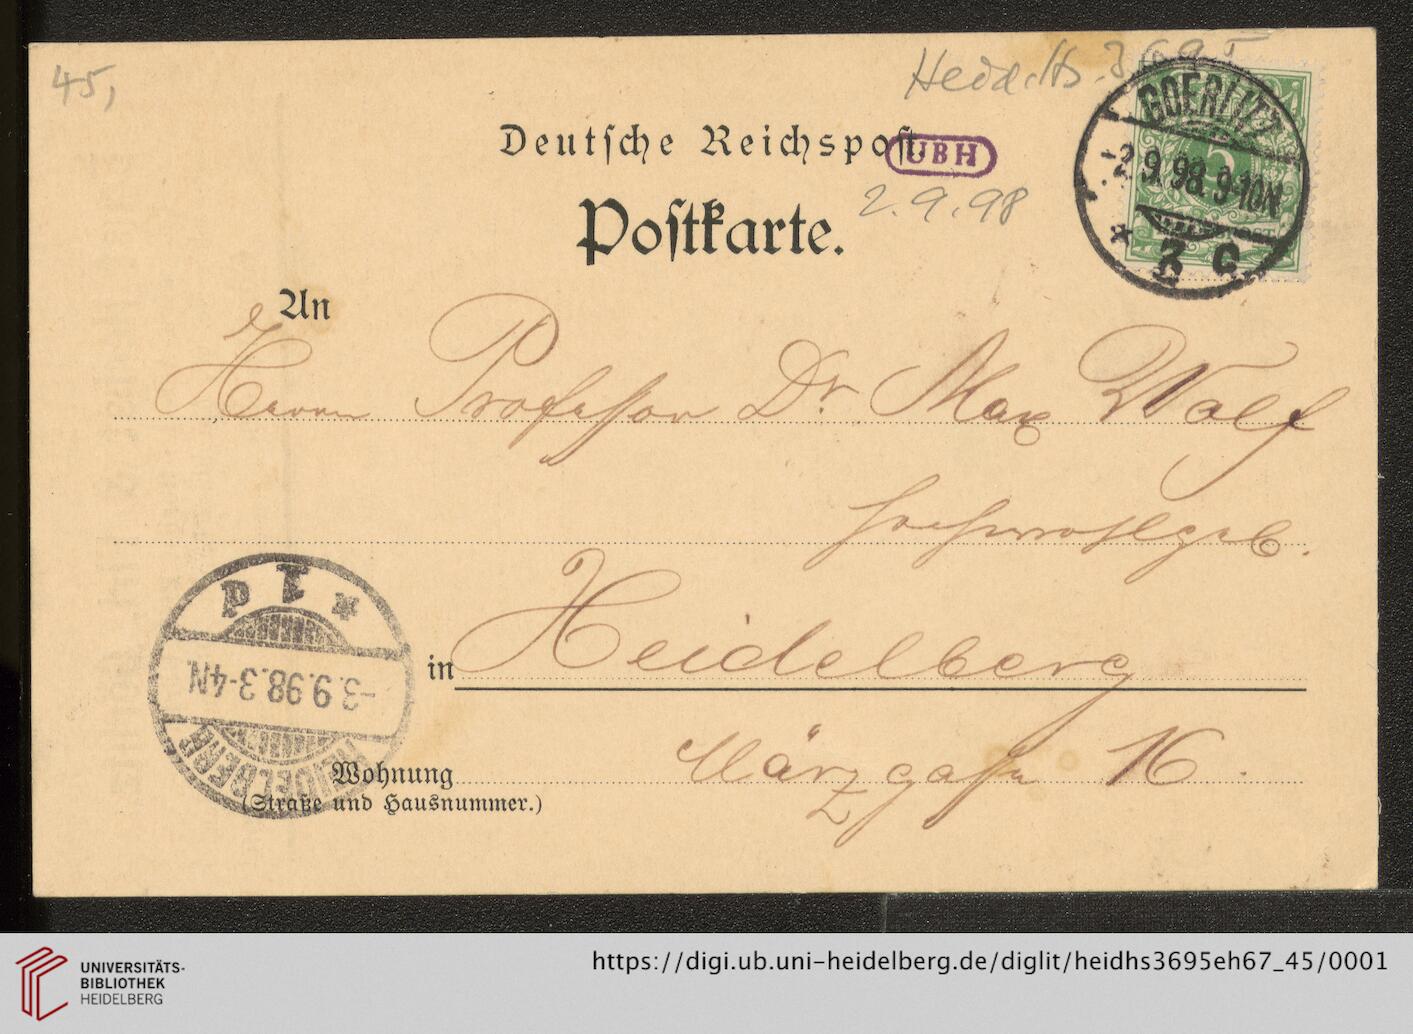 45,
Heid. Hs. 3695
Deutsche Reichspost
UBH
Postkarte.
2.9.98
GOERLITZ
-2.9.98.9-10N
* 2 c.
5
An
Herrn Professor Dr. Max Wolf
Hochwohlgeb.
in Heidelberg
Märzgasse 16.
Wohnung
(Straße und Hausnummer.)
HEIDELBERG
-3.9.98.3-4N.
* 1 d
UNIVERSITÄTS-
BIBLIOTHEK
HEIDELBERG
https://digi.ub.uni-heidelberg.de/diglit/heidhs3695eh67_45/0001